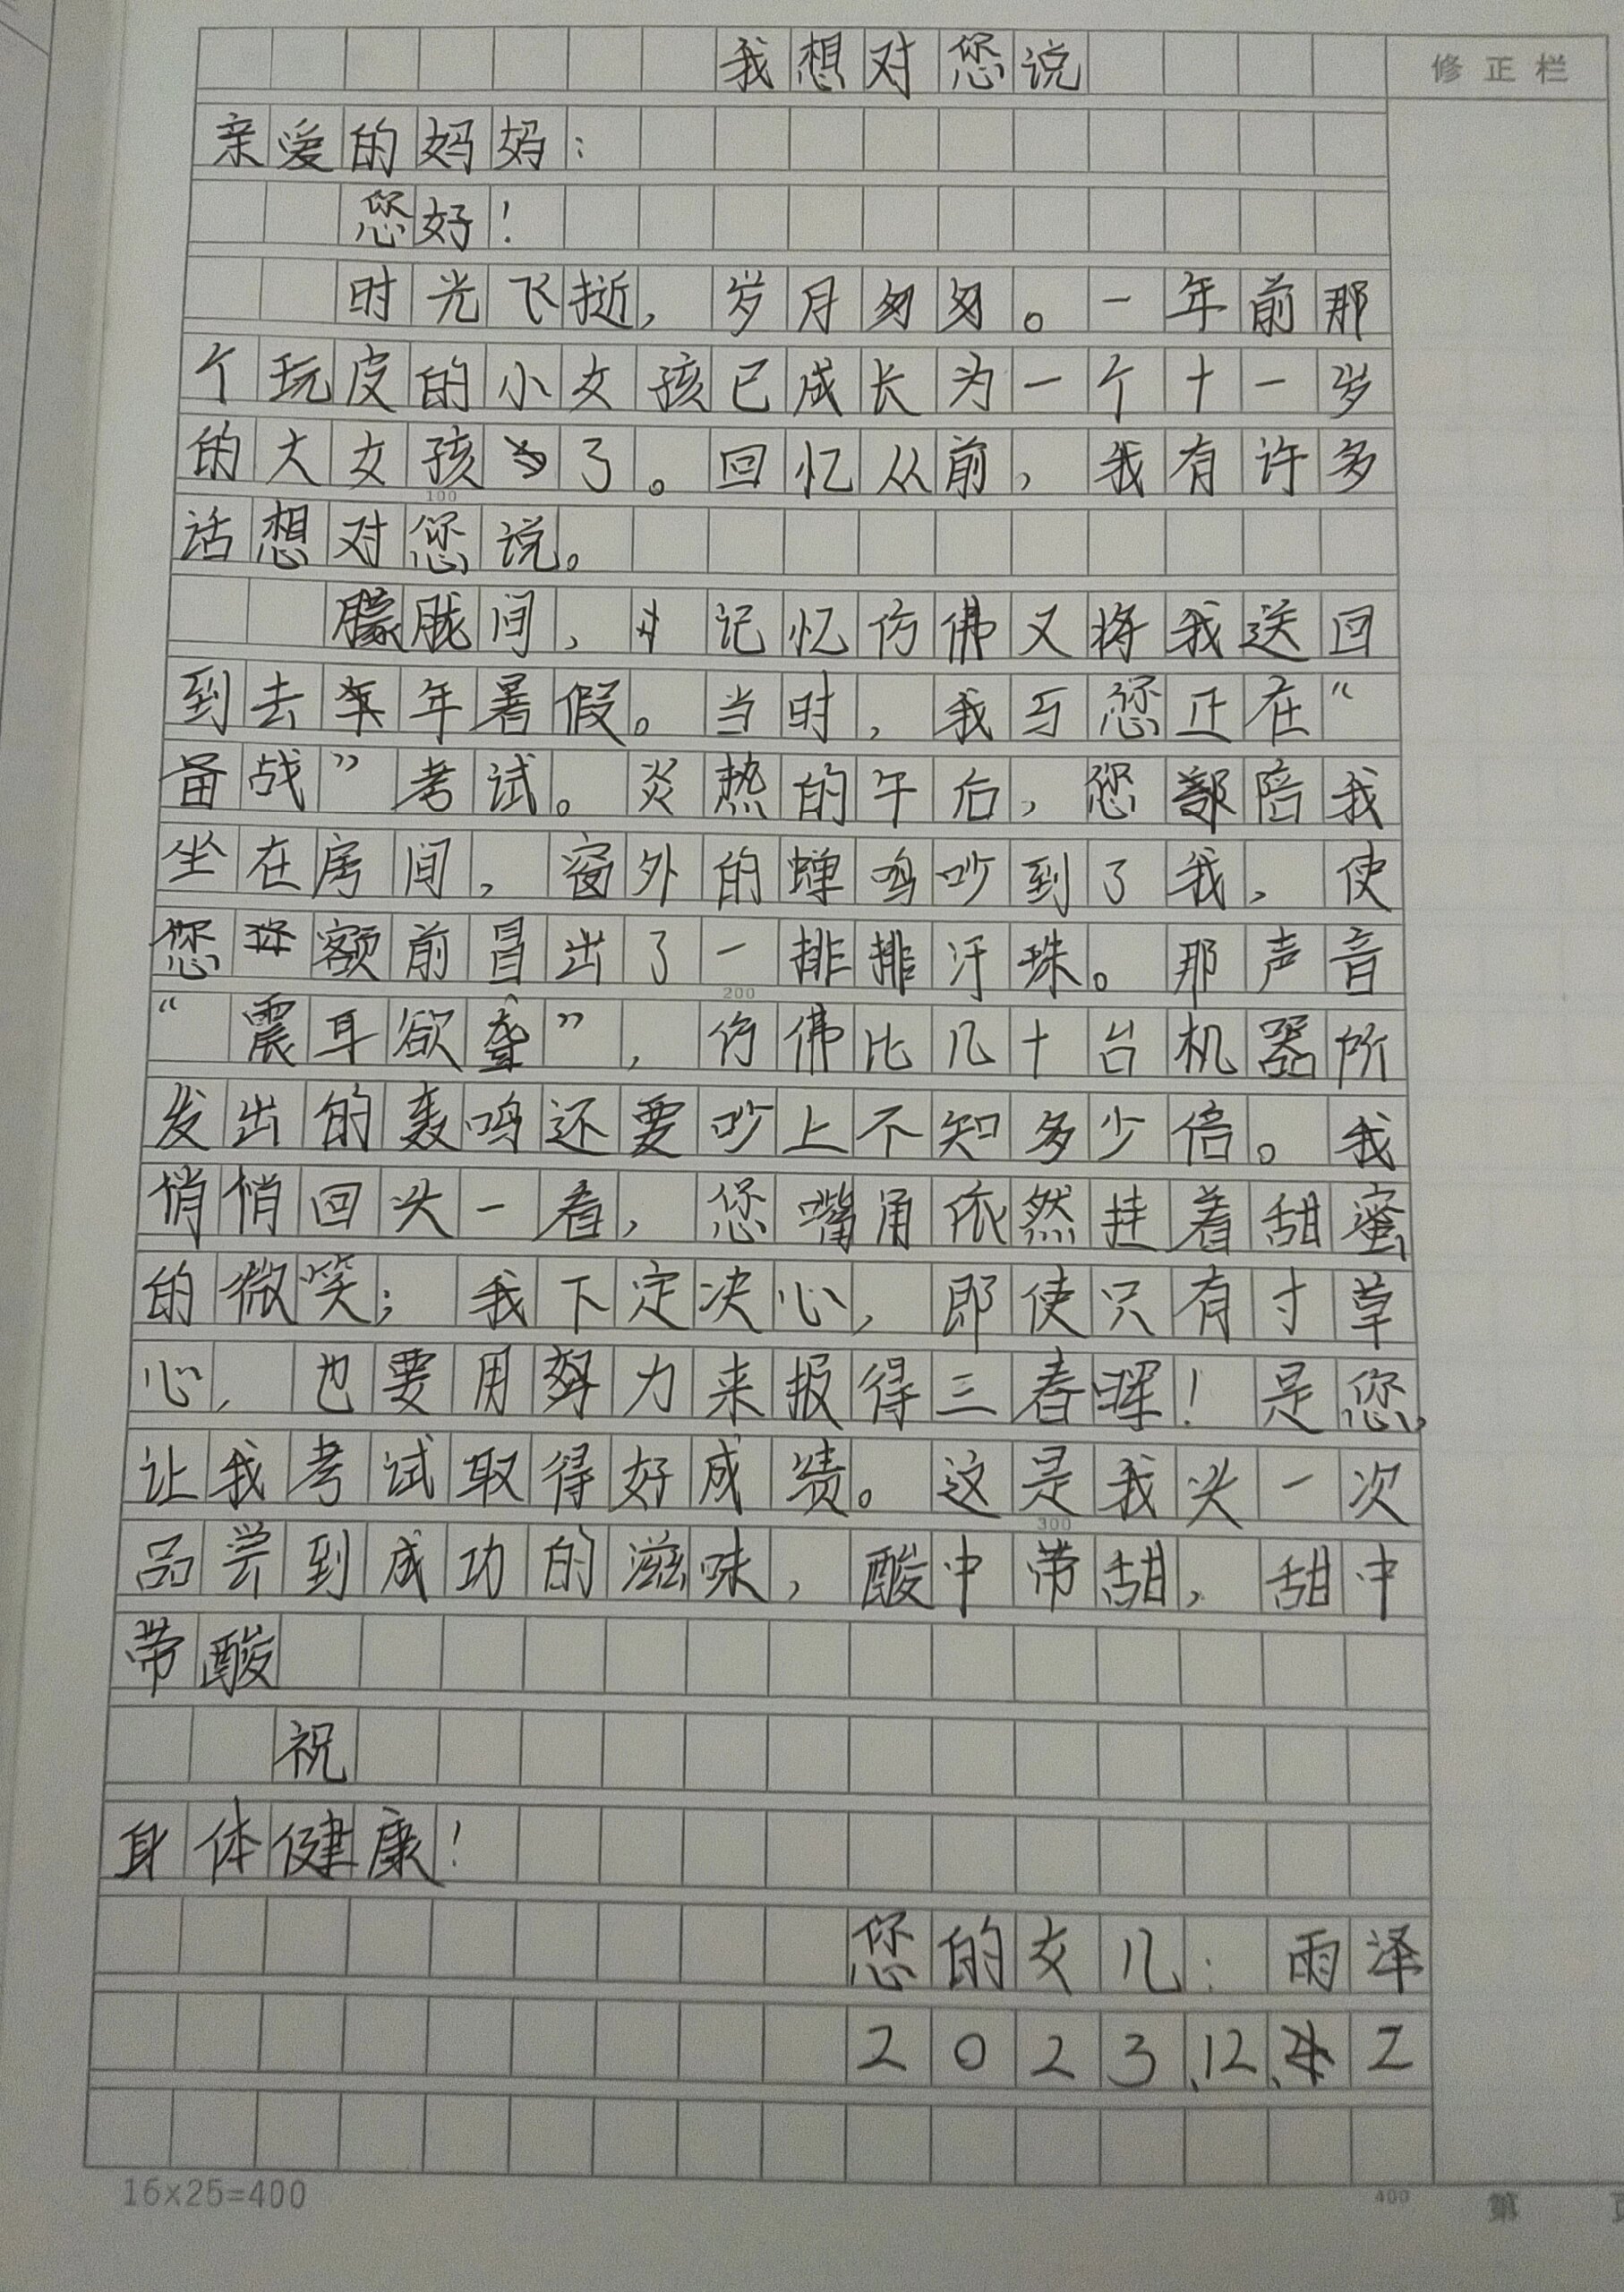 我想对您说
修正栏
亲爱的妈妈：
您好！
时光飞逝，岁月匆匆。一年前那
个玩皮的小女孩已成长为一个十一岁
的大女孩了。回忆从前，我有许多
100
话想对您说。
朦胧间，记忆仿佛又将我送回
到去年暑假。当时，我与您正在“
备战”考试。炎热的午后，您都陪我
坐在房间，窗外的蝉鸣吵到了我，使
您额前冒出了一排排汗珠。那声音
200
“震耳欲聋”，仿佛比几十台机器所
发出的轰鸣还要吵上不知多少倍。我
悄悄回头一看，您嘴角依然挂着甜蜜
的微笑；我下定决心，即使只有寸草
心，也要用努力来报得三春晖！是您，
让我考试取得好成绩。这是我头一次
300
品尝到成功的滋味，酸中带甜，甜中
带酸
祝
身体健康！
您的女儿：雨泽
2023.12.2
16×25=400
400
第 页